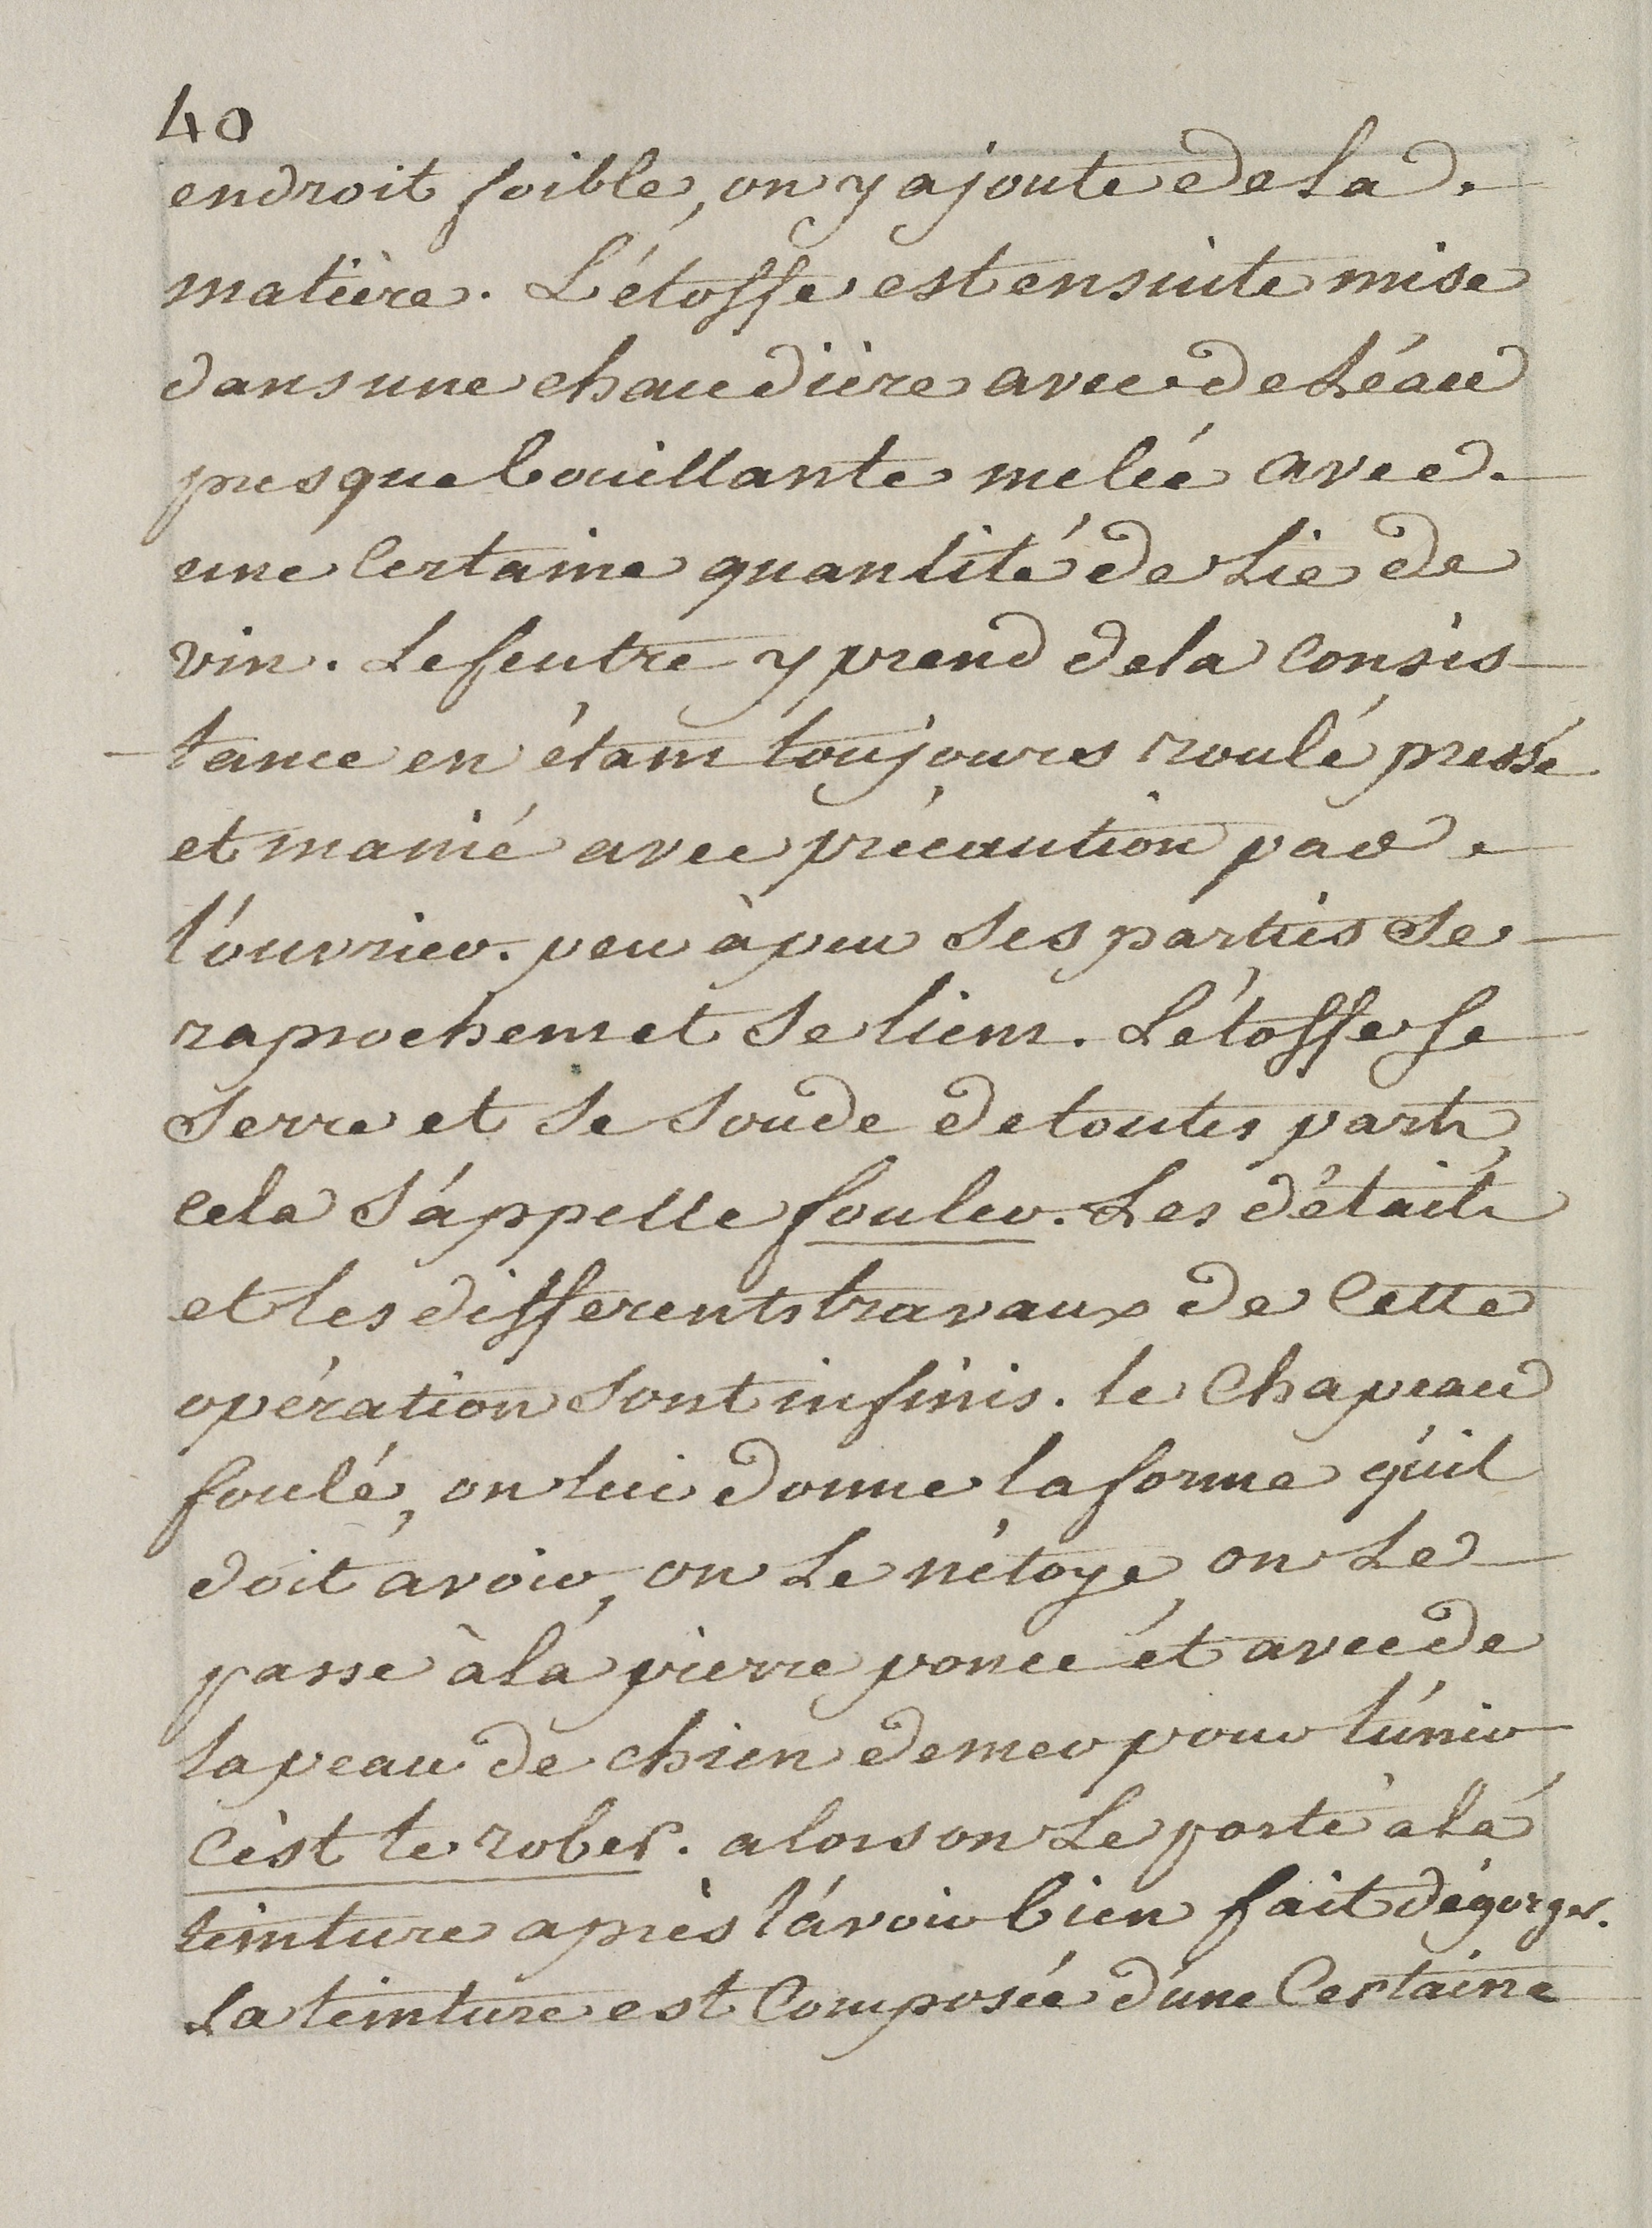 40
endroit foible, on y ajoute de la
matière. L'étoffe est ensuite mise
dans une chaudière avec de L'éau
presque bouillante melée avec
une Certaine quantité de Lie de
vin. Le feutre y prend de la Consis
-tance en étant toujours roulé pressé
et manié avec précaution par
l'ouvrier. peu à peu Ses parties Se
raprochent et Se lient. L'étoffe se
Serre et Se Soude de toutes parts,
Cela S'appelle fouler. Les détails
et les differents travaux de Cette
opération Sont infinis. le Chapeau
foulé, on lui donne la forme qu'il
doit avoir, on Le nétoye, on Le
passe à la pierre ponce et avec de
la peau de chien de mer pour l'unir
C'est le rober. alors on Le porte à la
teinture après l'avoir bien fait dégorger.
La teinture est Composée d'une Certaine